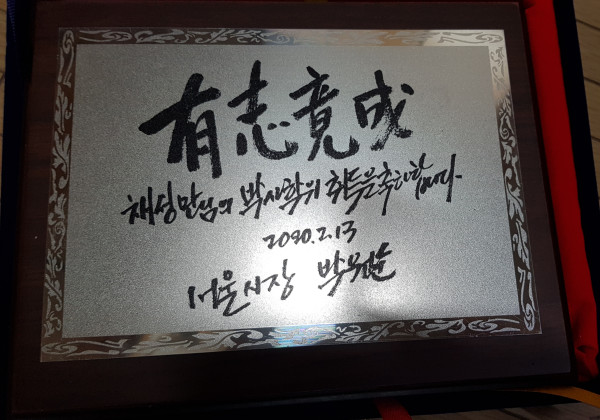 有志竟成
채성만님의 박사학위 취득을 축하합니다.
2020.2.13
서울시장 박원순